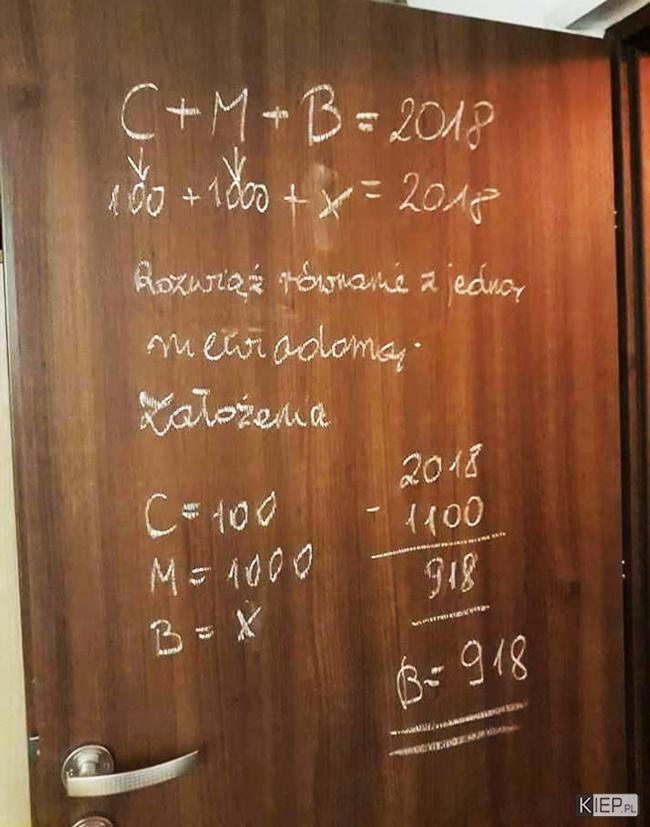 C + M + B = 2018
↓ ↓
100 + 1000 + x = 2018
Rozwiąż równanie z jedną
niewiadomą.
Założenia
C = 100
M = 1000
B = x
2018
- 1100
918
B = 918
KIEP.PL